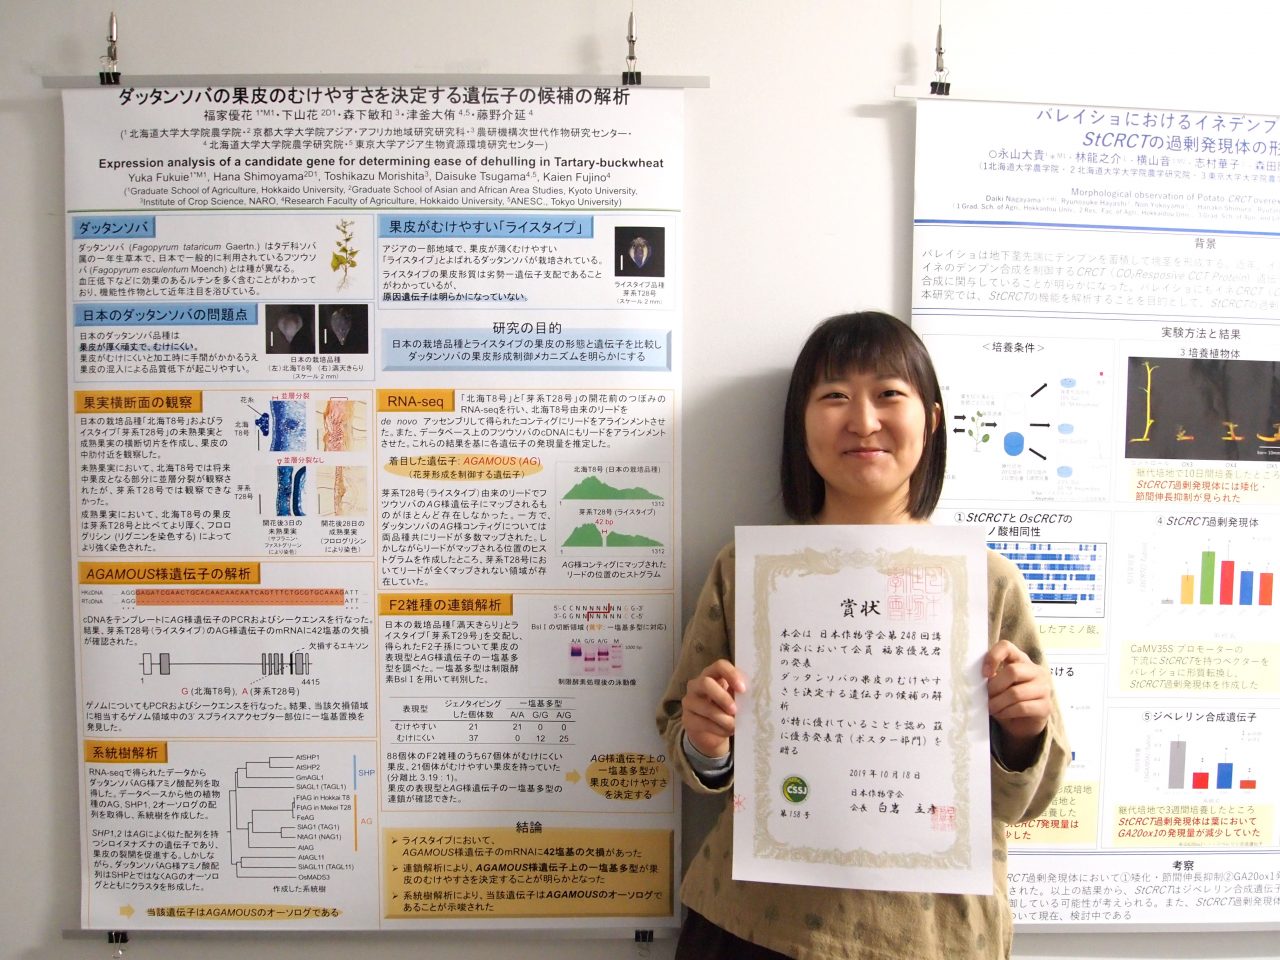 ダッタンソバの果皮のむけやすさを決定する遺伝子の候補の解析
福家優花 1*M1・下山花 2D1・森下敏和 3・津釜大侑 4,5・藤野介延 4
(1 北海道大学大学院農学院・2 京都大学大学院アジア・アフリカ地域研究研究科・3 農研機構次世代作物研究センター・
4 北海道大学大学院農学研究院・5 東京大学アジア生物資源環境研究センター)
Expression analysis of a candidate gene for determining ease of dehulling in Tartary-buckwheat
Yuka Fukuie1*M1, Hana Shimoyama2D1, Toshikazu Morishita3, Daisuke Tsugama4,5, Kaien Fujino4
(1Graduate School of Agriculture, Hokkaido University, 2Graduate School of Asian and African Area Studies, Kyoto University,
3Institute of Crop Science, NARO, 4Research Faculty of Agriculture, Hokkaido University, 5ANESC., Tokyo University)
ダッタンソバ
ダッタンソバ (Fagopyrum tataricum Gaertn.) はタデ科ソバ
属の一年生草本で、日本で一般的に利用されているフツウソ
バ (Fagopyrum esculentum Moench) とは種が異なる。
血圧低下などに効果のあるルチンを多く含むことがわかって
おり、機能性作物として近年注目を浴びている。
日本のダッタンソバの問題点
日本のダッタンソバ品種は
果皮が厚く頑丈で、むけにくい。
果皮がむけにくいと加工時に手間がかかるうえ
果皮の混入による品質低下が起こりやすい。
日本の栽培品種
(左)北海T8号 (右)満天きらり
(スケール 2 mm)
果皮がむけやすい「ライスタイプ」
アジアの一部地域で、果皮が薄くむけやすい
「ライスタイプ」とよばれるダッタンソバが栽培されている。
ライスタイプの果皮形質は劣勢一遺伝子支配であること
がわかっているが、
原因遺伝子は明らかになっていない。
ライスタイプ品種
芽系T28号
(スケール 2 mm)
研究の目的
日本の栽培品種とライスタイプの果皮の形態と遺伝子を比較し
ダッタンソバの果皮形成制御メカニズムを明らかにする
果実横断面の観察
日本の栽培品種「北海T8号」およびラ
イスタイプ「芽系T28号」の未熟果実と
成熟果実の横断切片を作成し、果皮の
中肋付近を観察した。
未熟果実において、北海T8号では将来
中果皮となる部分に並層分裂が観察さ
れたが、芽系T28号では観察できな
かった。
成熟果実において、北海T8号の果皮
は芽系T28号と比べてより厚く、フロログ
リシン (リグニンを染色する) によって
より強く染色された。
花糸
並層分裂
北海
T8号
並層分裂なし
芽系
T28号
開花後3日の
未熟果実
(サフラニン・
ファストグリーン
により染色)
開花後28日の
成熟果実
(フロログリシン
により染色)
RNA-seq
「北海T8号」と「芽系T28号」の開花前のつぼみの
RNA-seqを行い、北海T8号由来のリードを
de novo アッセンブリして得られたコンティグにリードをアラインメント
させた。また、データベース上のフツウソバのcDNAにもリードをアラインメント
させた。これらの結果を基に各遺伝子の発現量を推定した。
着目した遺伝子: AGAMOUS (AG)
(花芽形成を制御する遺伝子)
芽系T28号(ライスタイプ) 由来のリードでフ
ツウソバのAG様遺伝子にマップされるも
のがほとんど存在しなかった。一方で、
ダッタンソバのAG様コンティグについては
両品種共にリードが多数マップされた。し
かしながらリードがマップされる位置のヒス
トグラムを作成したところ、芽系T28号にお
いてリードが全くマップされない領域が存
在していた。
北海T8号 (日本の栽培品種)
1 1312
芽系T28号 (ライスタイプ)
42 bp
1 1312
AG様コンティグにマップされた
リードの位置のヒストグラム
AGAMOUS様遺伝子の解析
cDNAをテンプレートにAG様遺伝子のPCRおよびシーケンスを行なった。
結果、芽系T28号(ライスタイプ)のAG様遺伝子のmRNAに42塩基の欠損
が確認された。
欠損するエキソン
1 4415
G (北海T8号), A (芽系T28号)
ゲノムについてもPCRおよびシーケンスを行なった。結果、当該欠損領域
に相当するゲノム領域中の3' スプライスアクセプター部位に一塩基置換を
発見した。
F2雑種の連鎖解析
日本の栽培品種「満天きらり」とラ
イスタイプ「芽系T29号」を交配し、
得られたF2子孫について果皮の
表現型とAG様遺伝子の一塩基多
型を調べた。一塩基多型は制限酵
素Bsl I を用いて判別した。
5'-CCNNNNNNNGG-3'
3'-GGNNNNNNNCC-5'
Bsl I の切断領域 (黄字: 一塩基多型に対応)
A/A G/G A/G M
1000 bp
制限酵素処理後の泳動像
表現型 ジェノタイピング した個体数 一塩基多型 A/A G/G A/G
むけやすい 21 21 0 0
むけにくい 37 0 12 25
88個体のF2雑種のうち67個体がむけにくい
果皮、21個体がむけやすい果皮を持っていた
(分離比 3.19 : 1)。
果皮の表現型とAG様遺伝子の一塩基多型の
連鎖が確認できた。
AG様遺伝子上の
一塩基多型が
果皮のむけやすさ
を決定する
系統樹解析
RNA-seqで得られたデータから
ダッタンソバAG様アミノ酸配列を
得した。データベースから他の植物
種のAG, SHP1, 2オーソログの配
列を取得し、系統樹を作成した。
SHP1,2 はAGによく似た配列を持
つシロイヌナズナの遺伝子であり、
果皮の裂開を促進する。しかしな
がら、ダッタンソバAG様アミノ酸配
列はSHPとではなくAGのオーソロ
グとともにクラスタを形成した。
AtSHP1
AtSHP2
GmAGL1
SlAGL1 (TAGL1)
FtAG in Hokkai T8
FtAG in Mekei T28
FeAG
SlAG1 (TAG1)
NtAG1 (NAG1)
AtAG
AtAGL11
SlAGL11 (TAGL11)
OsMADS3
SHP
AG
作成した系統樹
当該遺伝子はAGAMOUSのオーソログである
結論
ライスタイプにおいて、
AGAMOUS様遺伝子のmRNAに42塩基の欠損があった
連鎖解析により、AGAMOUS様遺伝子上の一塩基多型が果
皮のむけやすさを決定することが明らかとなった
系統樹解析により、当該遺伝子はAGAMOUSのオーソログで
あることが示唆された
賞状
本会は 日本作物学会第248回講
演会において会員 福家優花君
の発表
ダッタンソバの果皮のむけやす
さを決定する遺伝子の候補の解
析
が特に優れていることを認め 茲
に優秀発表賞(ポスター部門)を
贈る
2019年10月18日
日本作物学会
会長 白岩 立彦
CSSJ
第158号
バレイショにおけるイネデンプ
StCRCTの過剰発現体の形
○永山大貴 ・林龍之介 ・横山音 ・志村華子 ・森田
Morphological observation of Potato CRCT over
背景
実験方法と結果
<培養条件>
3 培養植物体
継代培地で10日間培養したところ
StCRCT過剰発現体には矮化・
節間伸長抑制が見られた
①StCRCTと OsCRCTの
ノ酸相同性
したアミノ酸,
4 StCRCT過剰発現体
CaMV35S プロモーターの
下流にStCRCTを持つベクターを
バレイショに形質転換し、
StCRCT過剰発現体を作成した
⑤ジベレリン合成遺伝子
継代培地で3週間培養したところ
StCRCT過剰発現体は葉において
GA20ox1の発現量が減少していた
考察
CT過剰発現体において①矮化・節間伸長抑制②GA20ox1発
された。以上の結果から、StCRCTはジベレリン合成遺伝子
御している可能性が考えられる。また、StCRCT過剰発現体
ついて現在、検討中である